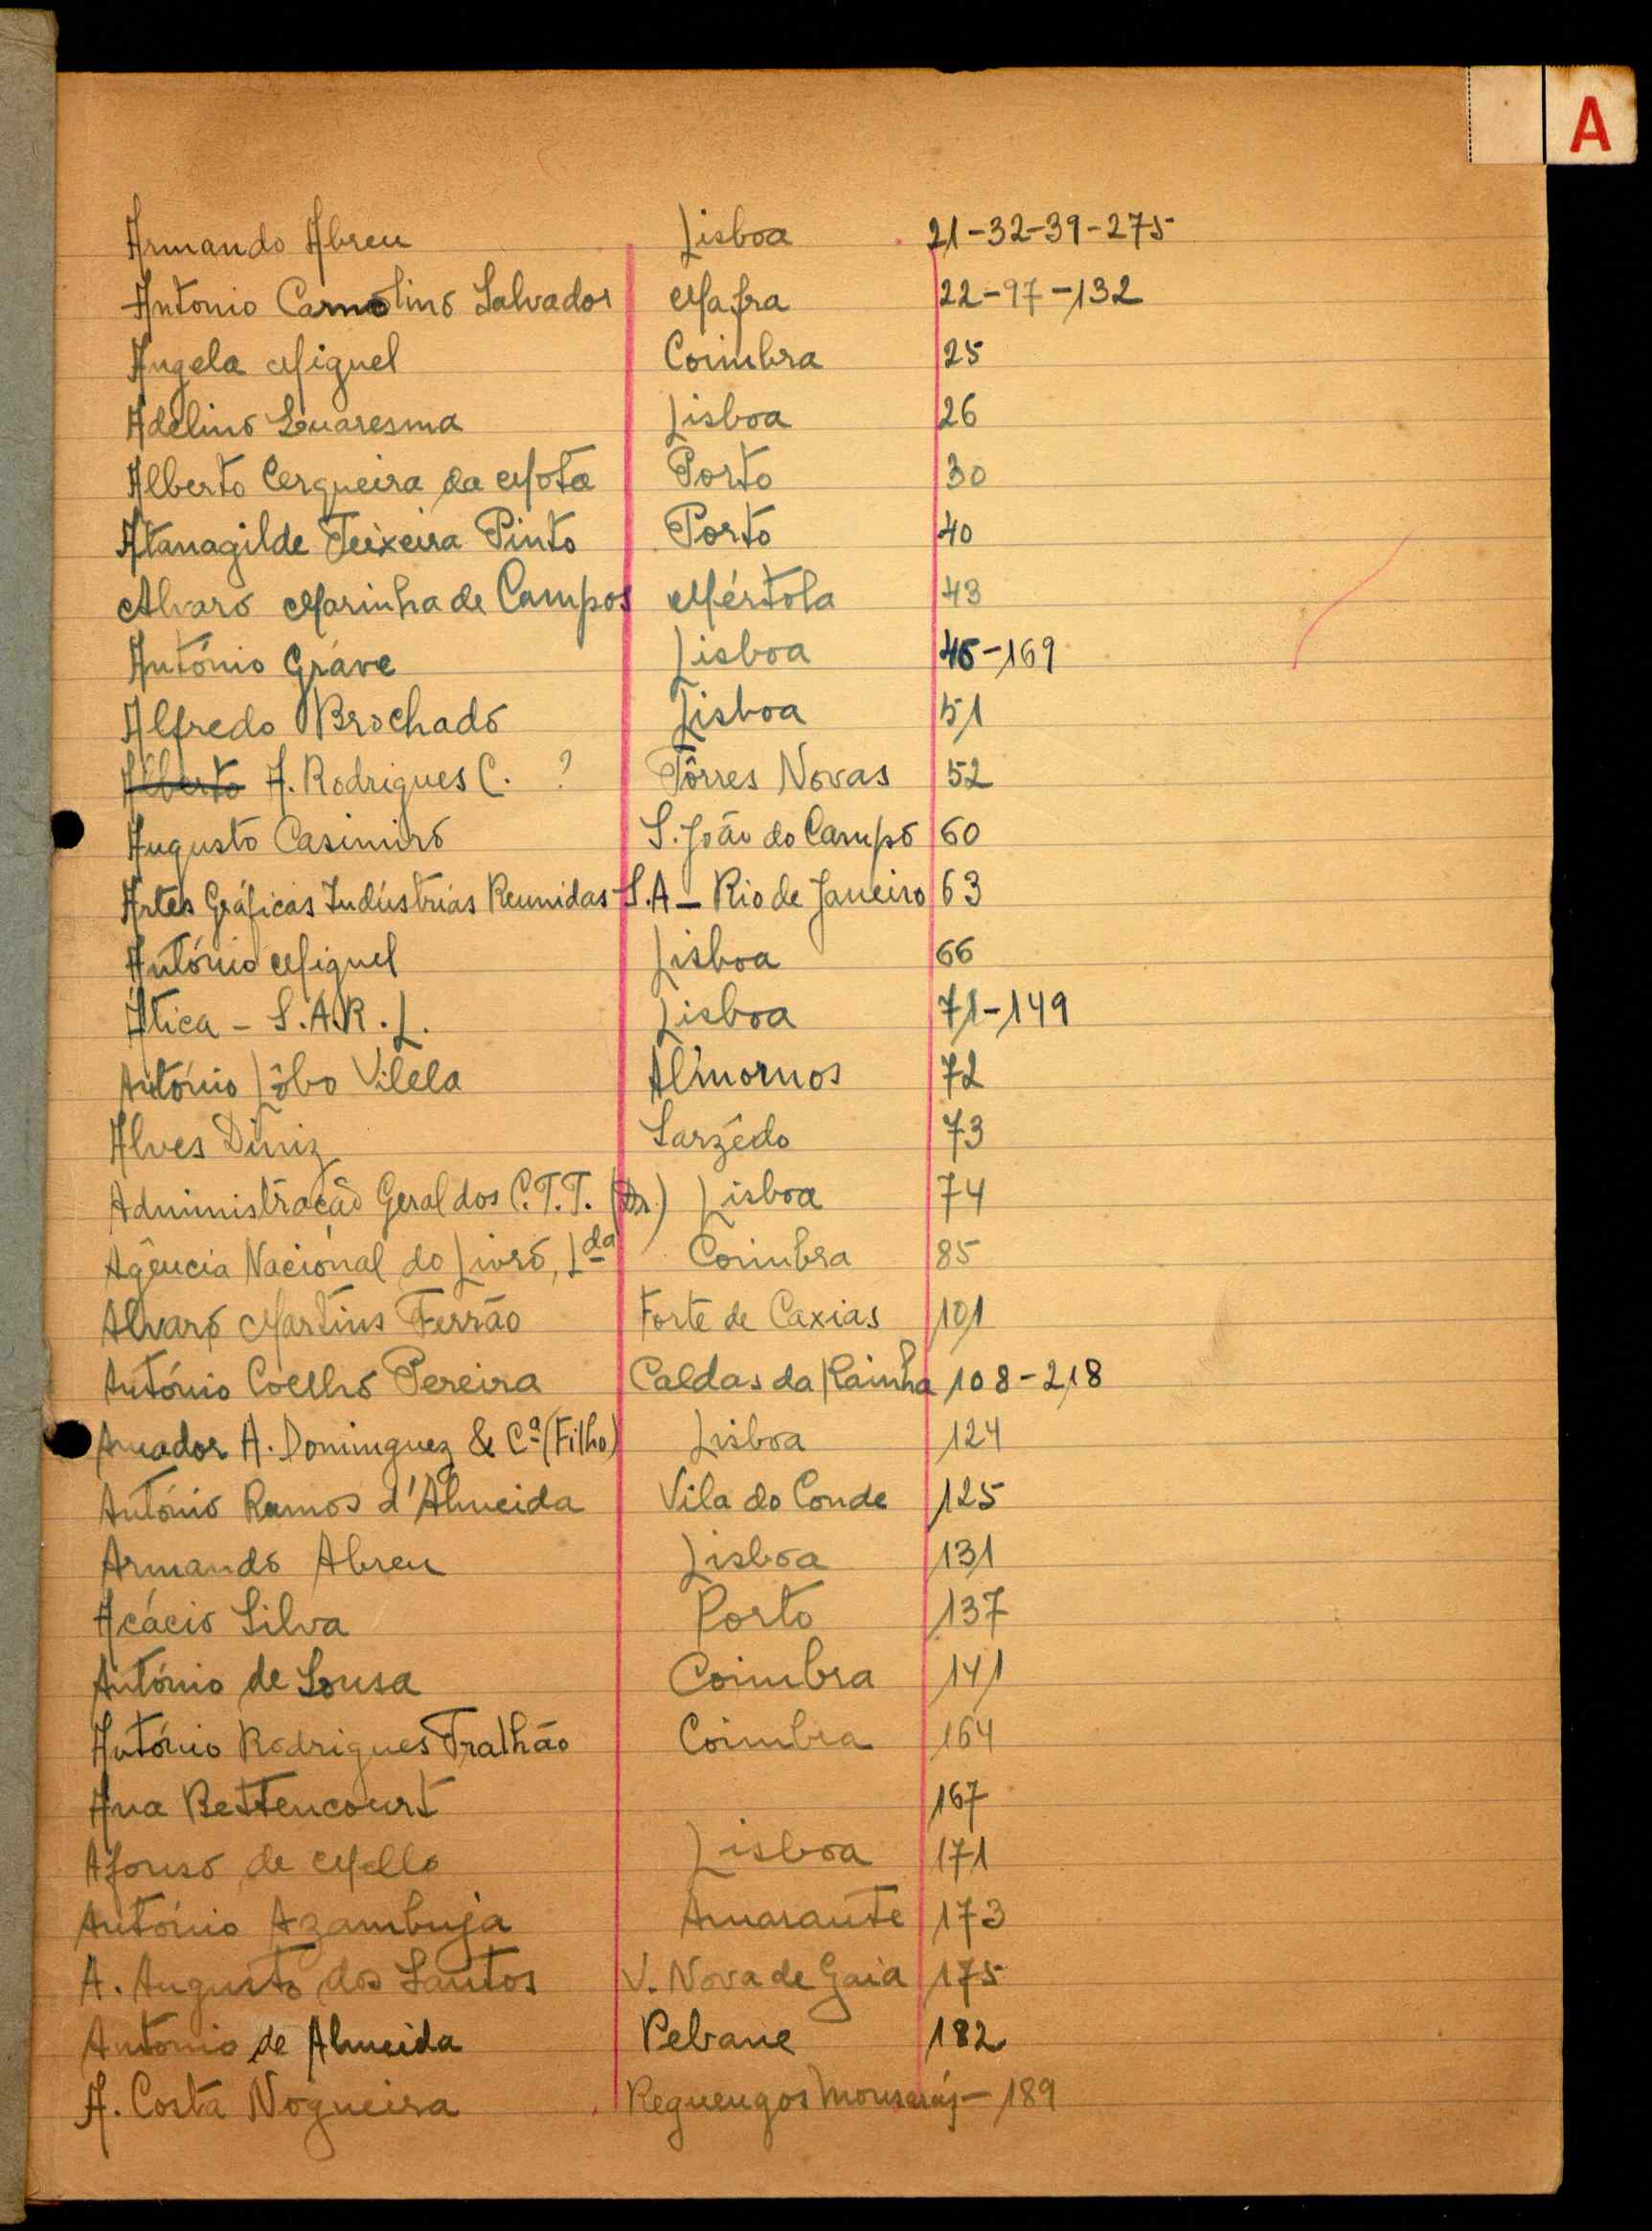 A
Armando Abreu Lisboa 21-32-39-275
Antonio Carnolino Salvador Mafra 22-97-132
Angela Miguel Coimbra 25
Adelino Quaresma Lisboa 26
Alberto Cerqueira da Mota Porto 30
Atanagilde Teixeira Pinto Porto 40
Alvaro Marinha de Campos Mértola 43
António Gráve Lisboa 45-169
Alfredo Brochado Lisboa 51
Alberto A. Rodrigues C. ? Tôrres Novas 52
Augusto Casimiro S. João do Campo 60
Artes Gráficas Indústrias Reunidas-S.A - Rio de Janeiro 63
António Miguel Lisboa 66
Ática - S.A.R.L. Lisboa 71-149
António Lôbo Vilela Almornos 72
Alves Diniz Sarzêdo 73
Administração Geral dos C.T.T. (Dr.) Lisboa 74
Agência Nacional do Livro, Lda Coimbra 85
Alvaro Martins Ferrão Forte de Caxias 101
António Coelho Pereira Caldas da Rainha 108-218
Amador A. Dominguez & Cª (Filho) Lisboa 124
António Ramos d'Almeida Vila do Conde 125
Armando Abreu Lisboa 131
Acácio Silva Porto 137
António de Sousa Coimbra 141
António Rodrigues Tralhão Coimbra 164
Ana Bettencourt 167
Afonso de Mello Lisboa 171
António Azambuja Amarante 173
A. Augusto dos Santos V. Nova de Gaia 175
António de Almeida Pebane 182
A. Costa Nogueira Reguengos Monsaráz - 189